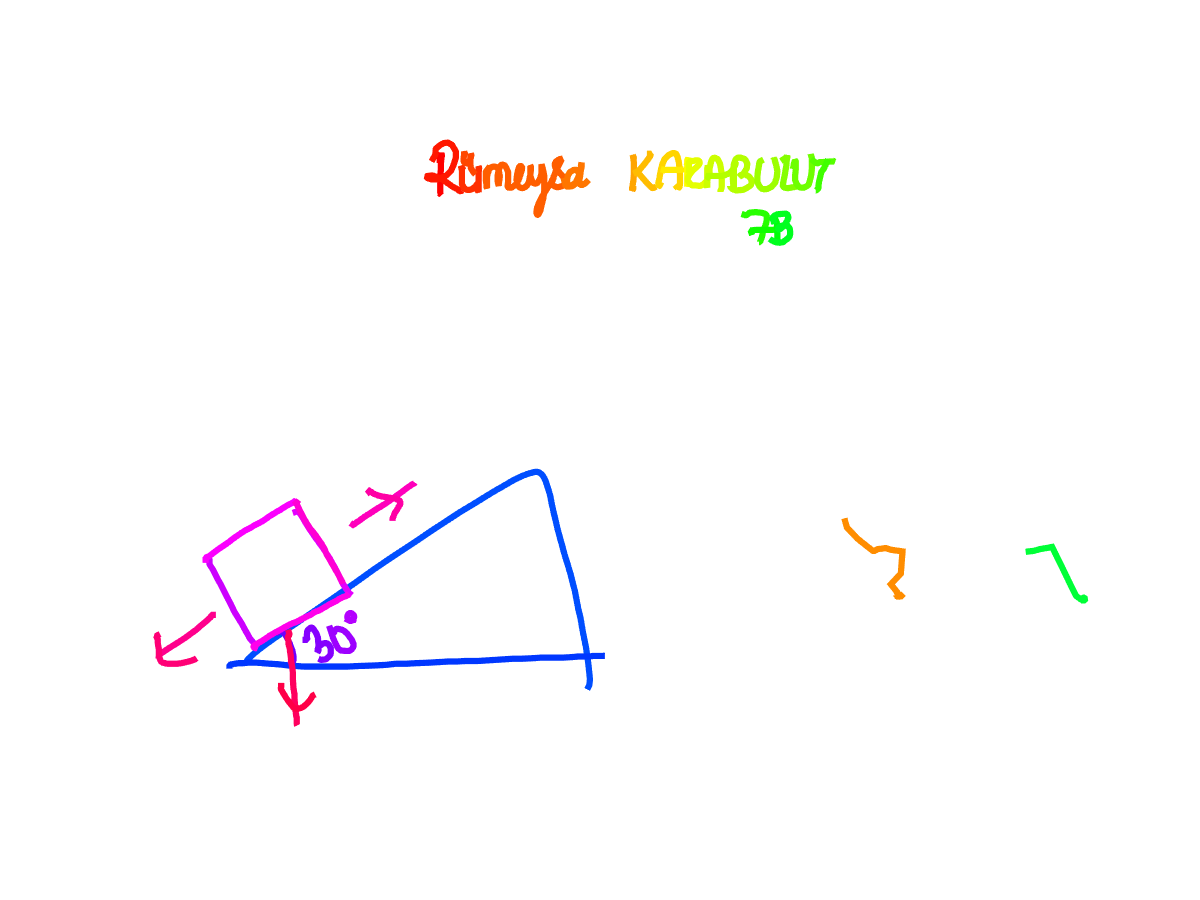 Rümeysa KARABULUT
7B
30°